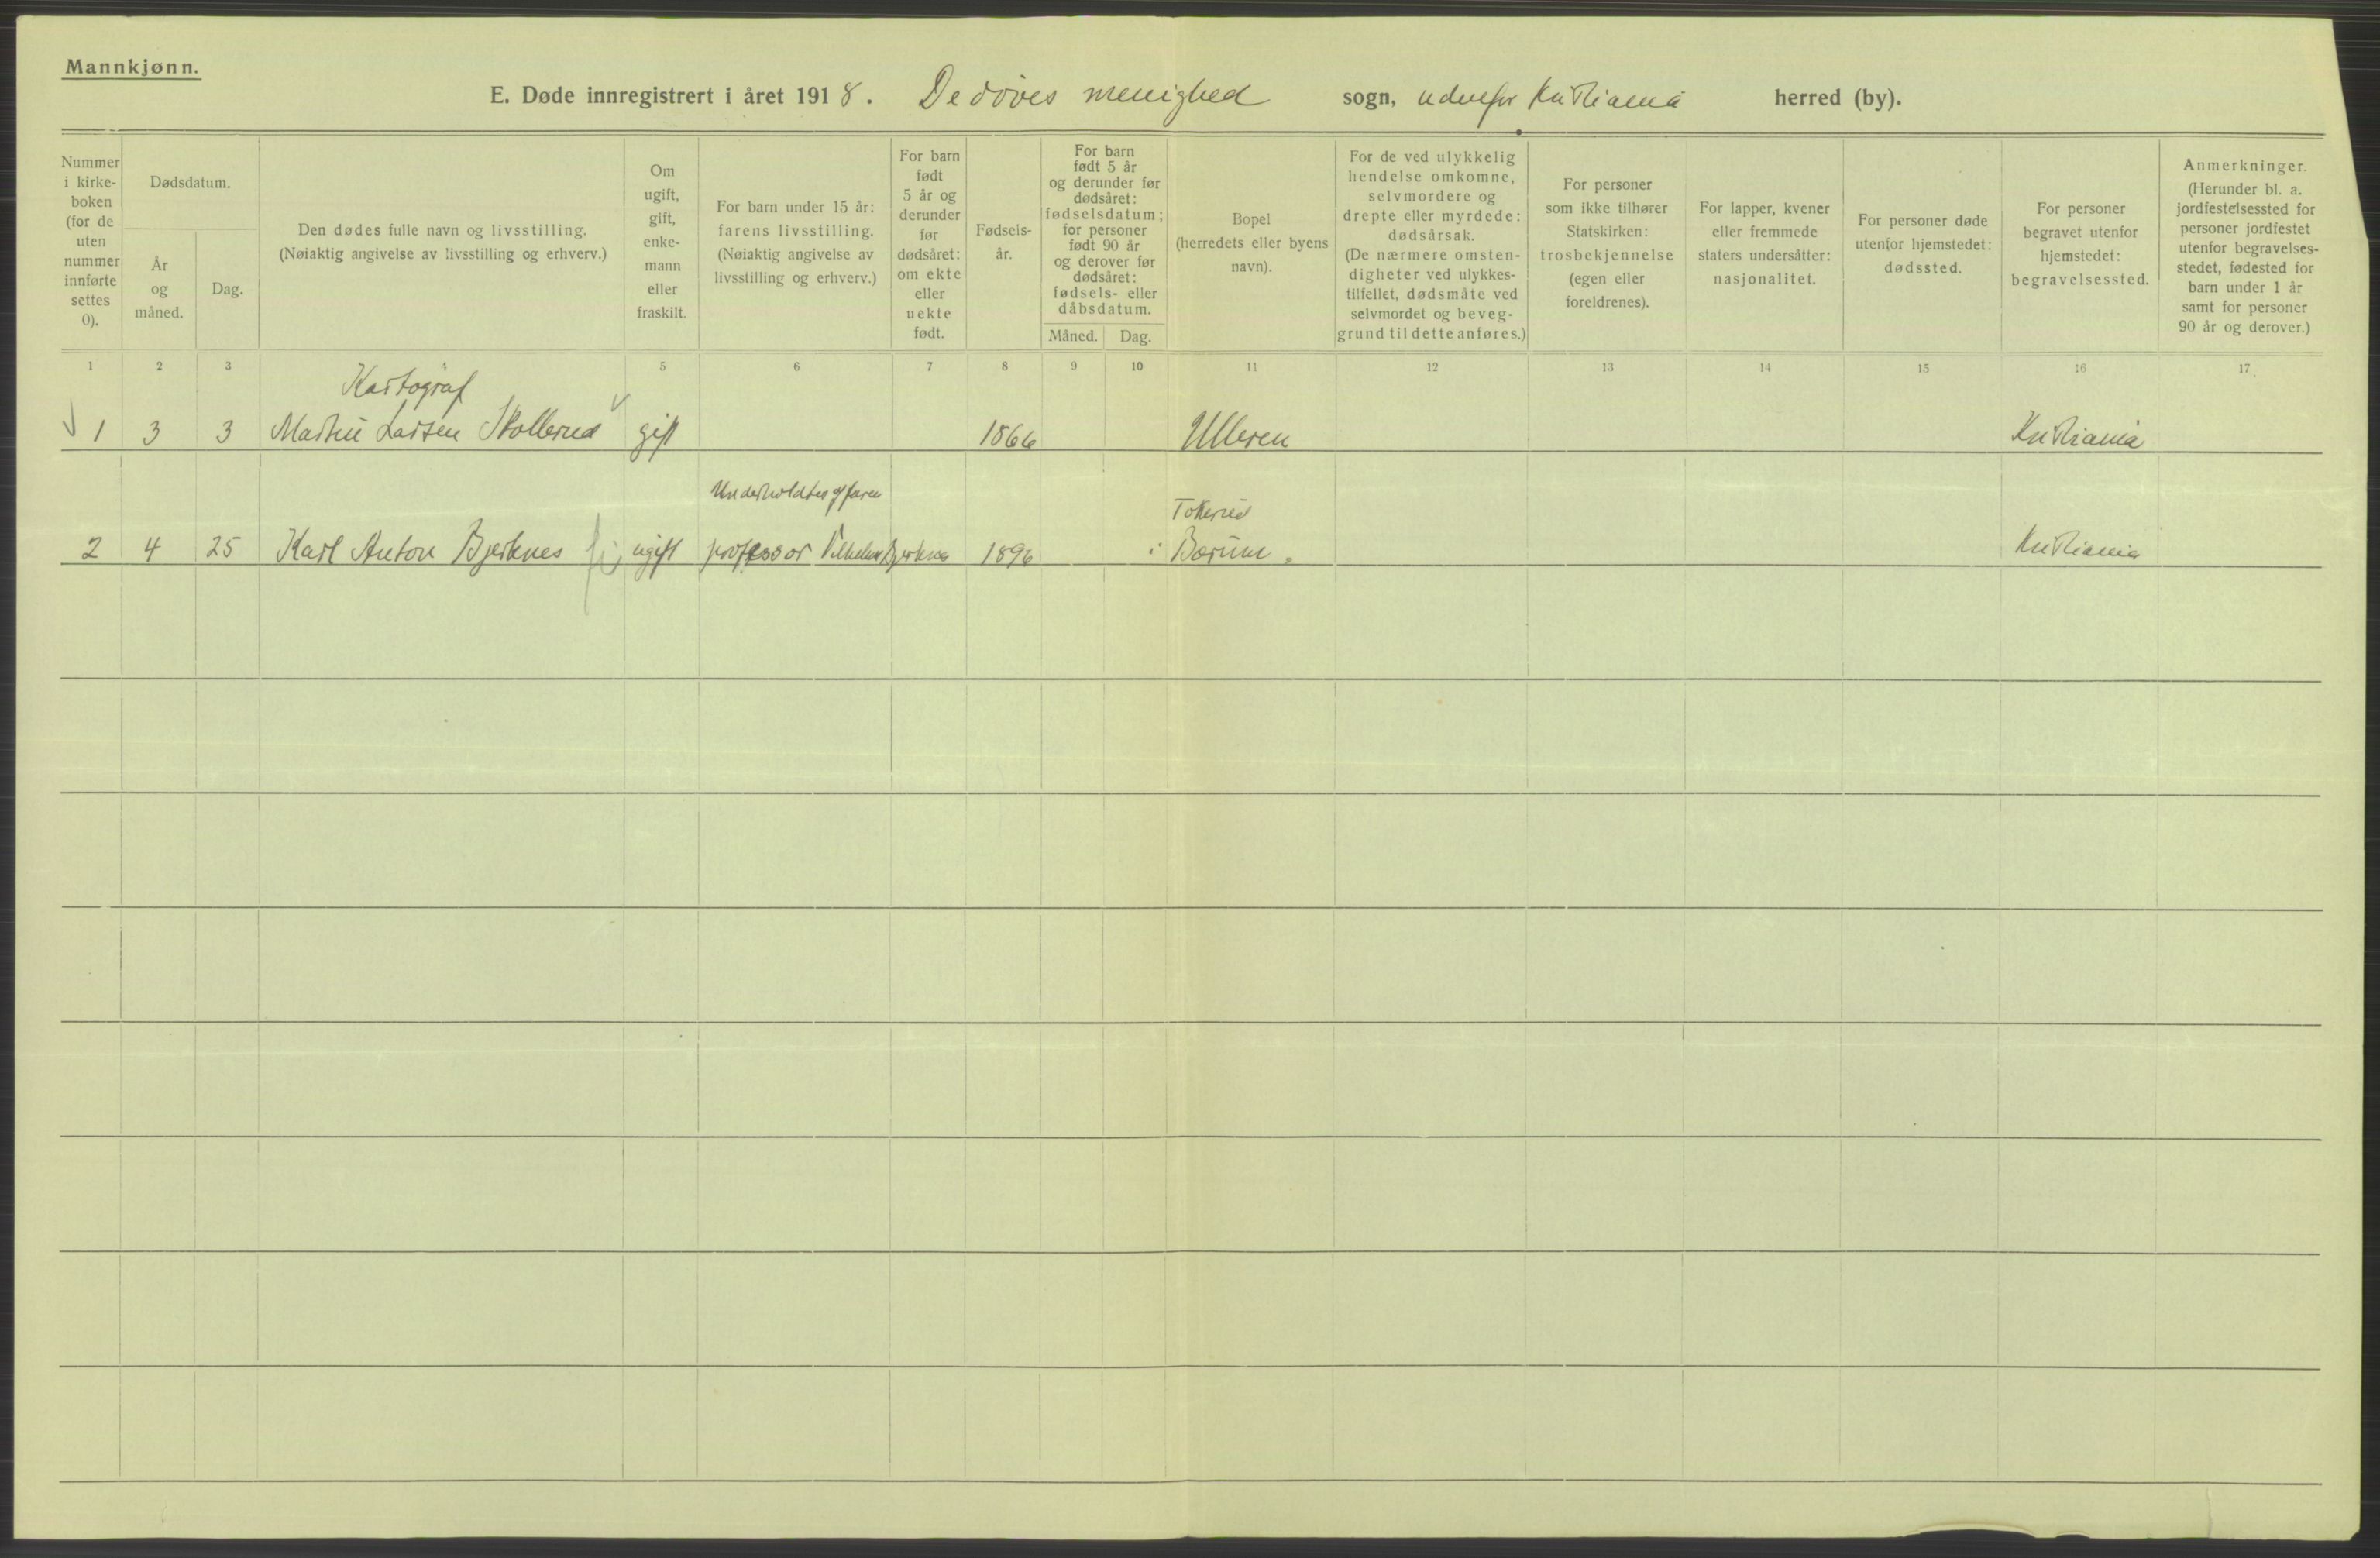 Mannkjønn.
E. Døde innregistrert i året 1918. De døves menighed sogn, udenfor Kristiania herred (by).
Nummer i kirke- boken (for de uten nummer innførte settes 0).
Dødsdatum.
År og måned.
Dag.
Den dødes fulle navn og livsstilling.
(Nøiaktig angivelse av livsstilling og erhverv.)
Om ugift, gift, enke- mann eller fraskilt.
For barn under 15 år: farens livsstilling.
(Nøiaktig angivelse av livsstilling og erhverv.)
For barn født 5 år og derunder før dødsåret: om ekte eller uekte født.
Fødsels- år.
For barn født 5 år og derunder før dødsåret: fødselsdatum; for personer født 90 år og derover før dødsåret: fødsels- eller dåbsdatum.
Måned. Dag.
Bopel (herredets eller byens navn).
For de ved ulykkelig hendelse omkomne, selvmordere og drepte eller myrdede: dødsårsak.
(De nærmere omsten- digheter ved ulykkes- tilfellet, dødsmåte ved selvmordet og beveg- grund til dette anføres.)
For personer som ikke tilhører Statskirken: trosbekjennelse (egen eller foreldrenes).
For lapper, kvener eller fremmede staters undersåtter: nasjonalitet.
For personer døde utenfor hjemstedet: dødssted.
For personer begravet utenfor hjemstedet: begravelsessted.
Anmerkninger.
(Herunder bl. a. jordfestelsessted for personer jordfestet utenfor begravelses- stedet, fødested for barn under 1 år samt for personer 90 år og derover.)
1 2 3 5 6 7 8 9 10 11 12 13 14 15 16 17
Kartograf
1 3 3 Martin Larsen Skollerud gift 1866 Ulleren Kristiania
Underholdtes af faren
Tokerud
2 4 25 Karl Anton Bjerknes ugift professor Vilhelm Bjerknes 1896 i Bærum. Kristiania